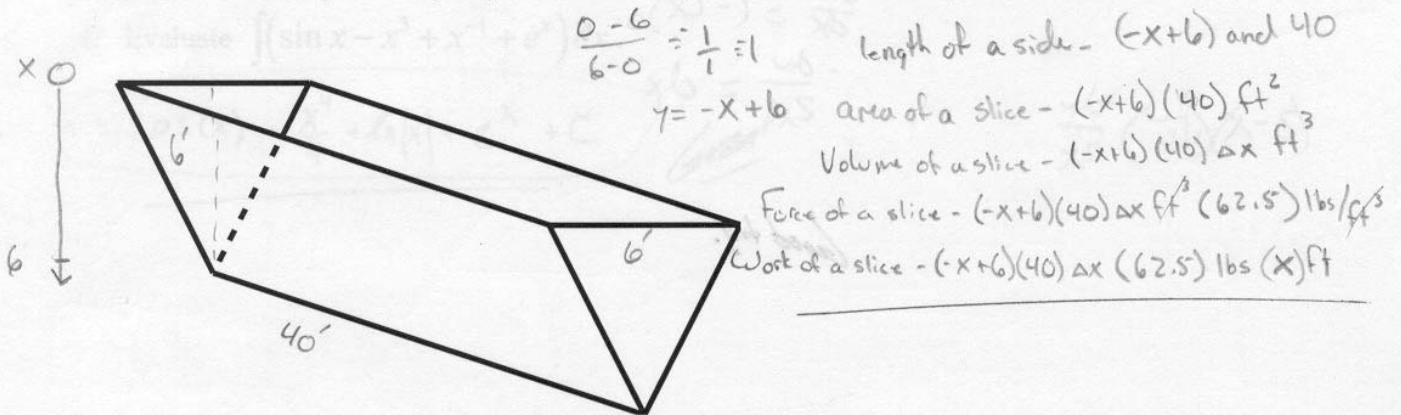 Evaluate ∫(sin x − x³ + x⁻¹ + eˣ)
x 0
6
6'
40'
6'
0-6
6-0
= 1/1 = 1
y = -x+6
length of a side - (-x+6) and 40
area of a slice - (-x+6)(40) ft²
Volume of a slice - (-x+6)(40) Δx ft³
Force of a slice - (-x+6)(40) Δx ft³ (62.5) lbs/ft³
Work of a slice - (-x+6)(40) Δx (62.5) lbs (x) ft